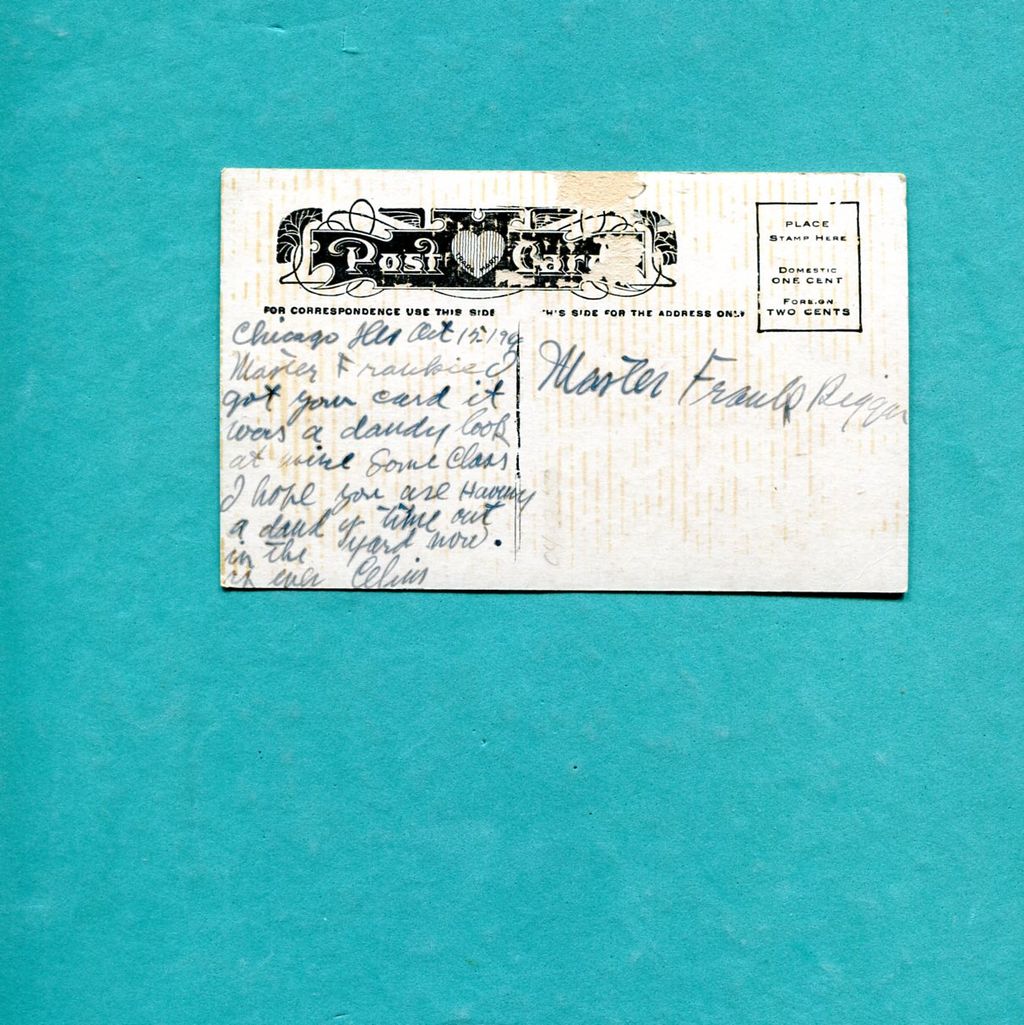 Post Card
PLACE
STAMP HERE
DOMESTIC
ONE CENT
FOREIGN
TWO CENTS
FOR CORRESPONDENCE USE THIS SIDE
THIS SIDE FOR THE ADDRESS ONLY
Chicago Ills Oct 15 19
Master Frankie I
got your card it
was a dandy look
at mine Some Class
I hope you are Having
a dandy time out
in the yard now.
as ever
Master Frank